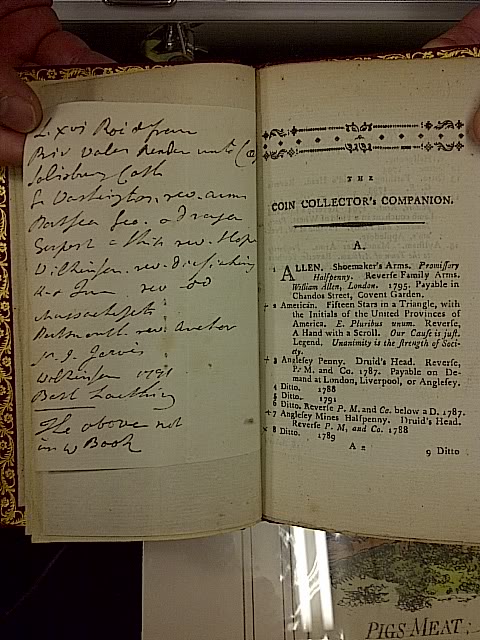 L. xvi Roi de fran
Briv Vales Render unto C
Salisbury Cath
G. Washington, rev. arms
Portsea Geo. a Dragon
Gosport a Ship rev. Hope
Wilkinson. rev.
rev.
Massachusetts
Portsmouth rev. Anchor
J. Jarvis
Wilkinson 1791
Bath Farthing
The above not
in ye Book
THE
COIN COLLECTOR'S COMPANION.
A.
1 ALLEN. Shoemaker's Arms. Promissory
Halfpenny. Reverse Family Arms.
William Allen, London. 1795, Payable in
Chandos Street, Covent Garden.
2 American. Fifteen Stars in a Triangle, with
the Initials of the United Provinces of
America. E. Pluribus unum. Reverse,
A Hand with a Scroll. Our Cause is just.
Legend. Unanimity is the strength of Soci-
ety.
+ 3 Anglesey Penny. Druid's Head. Reverse,
P. M. and Co. 1787. Payable on De-
mand at London, Liverpool, or Anglesey.
4 Ditto. 1788
5 Ditto. 1791
6 Ditto. Reverse P. M. and Co. below a D. 1787.
+ 7 Anglesey Mines Halfpenny. Druid's Head.
Reverse P. M, and Co. 1788
× 8 Ditto. 1789
A 2
9 Ditto
PIGS MEAT;